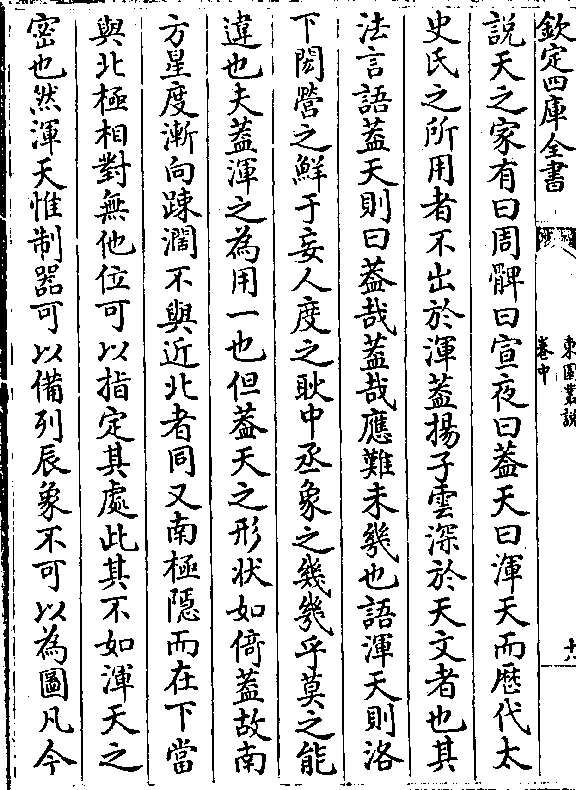 欽定四庫全書
東園叢說
卷中
十八
說天之家有曰周髀曰宣夜曰蓋天曰渾天而厯代太
史氏之所用者不出於渾蓋揚子雲深於天文者也其
法言語蓋天則曰蓋哉蓋哉應難未幾也語渾天則洛
下閎營之鮮于妄人度之耿中丞象之幾幾乎莫之能
違也夫蓋渾之為用一也但蓋天之形状如倚蓋故南
方星度漸向踈濶不與近北者同又南極隱而在下當
與北極相對無他位可以指定其處此其不如渾天之
密也然渾天惟制器可以備列辰象不可以為圖凡今